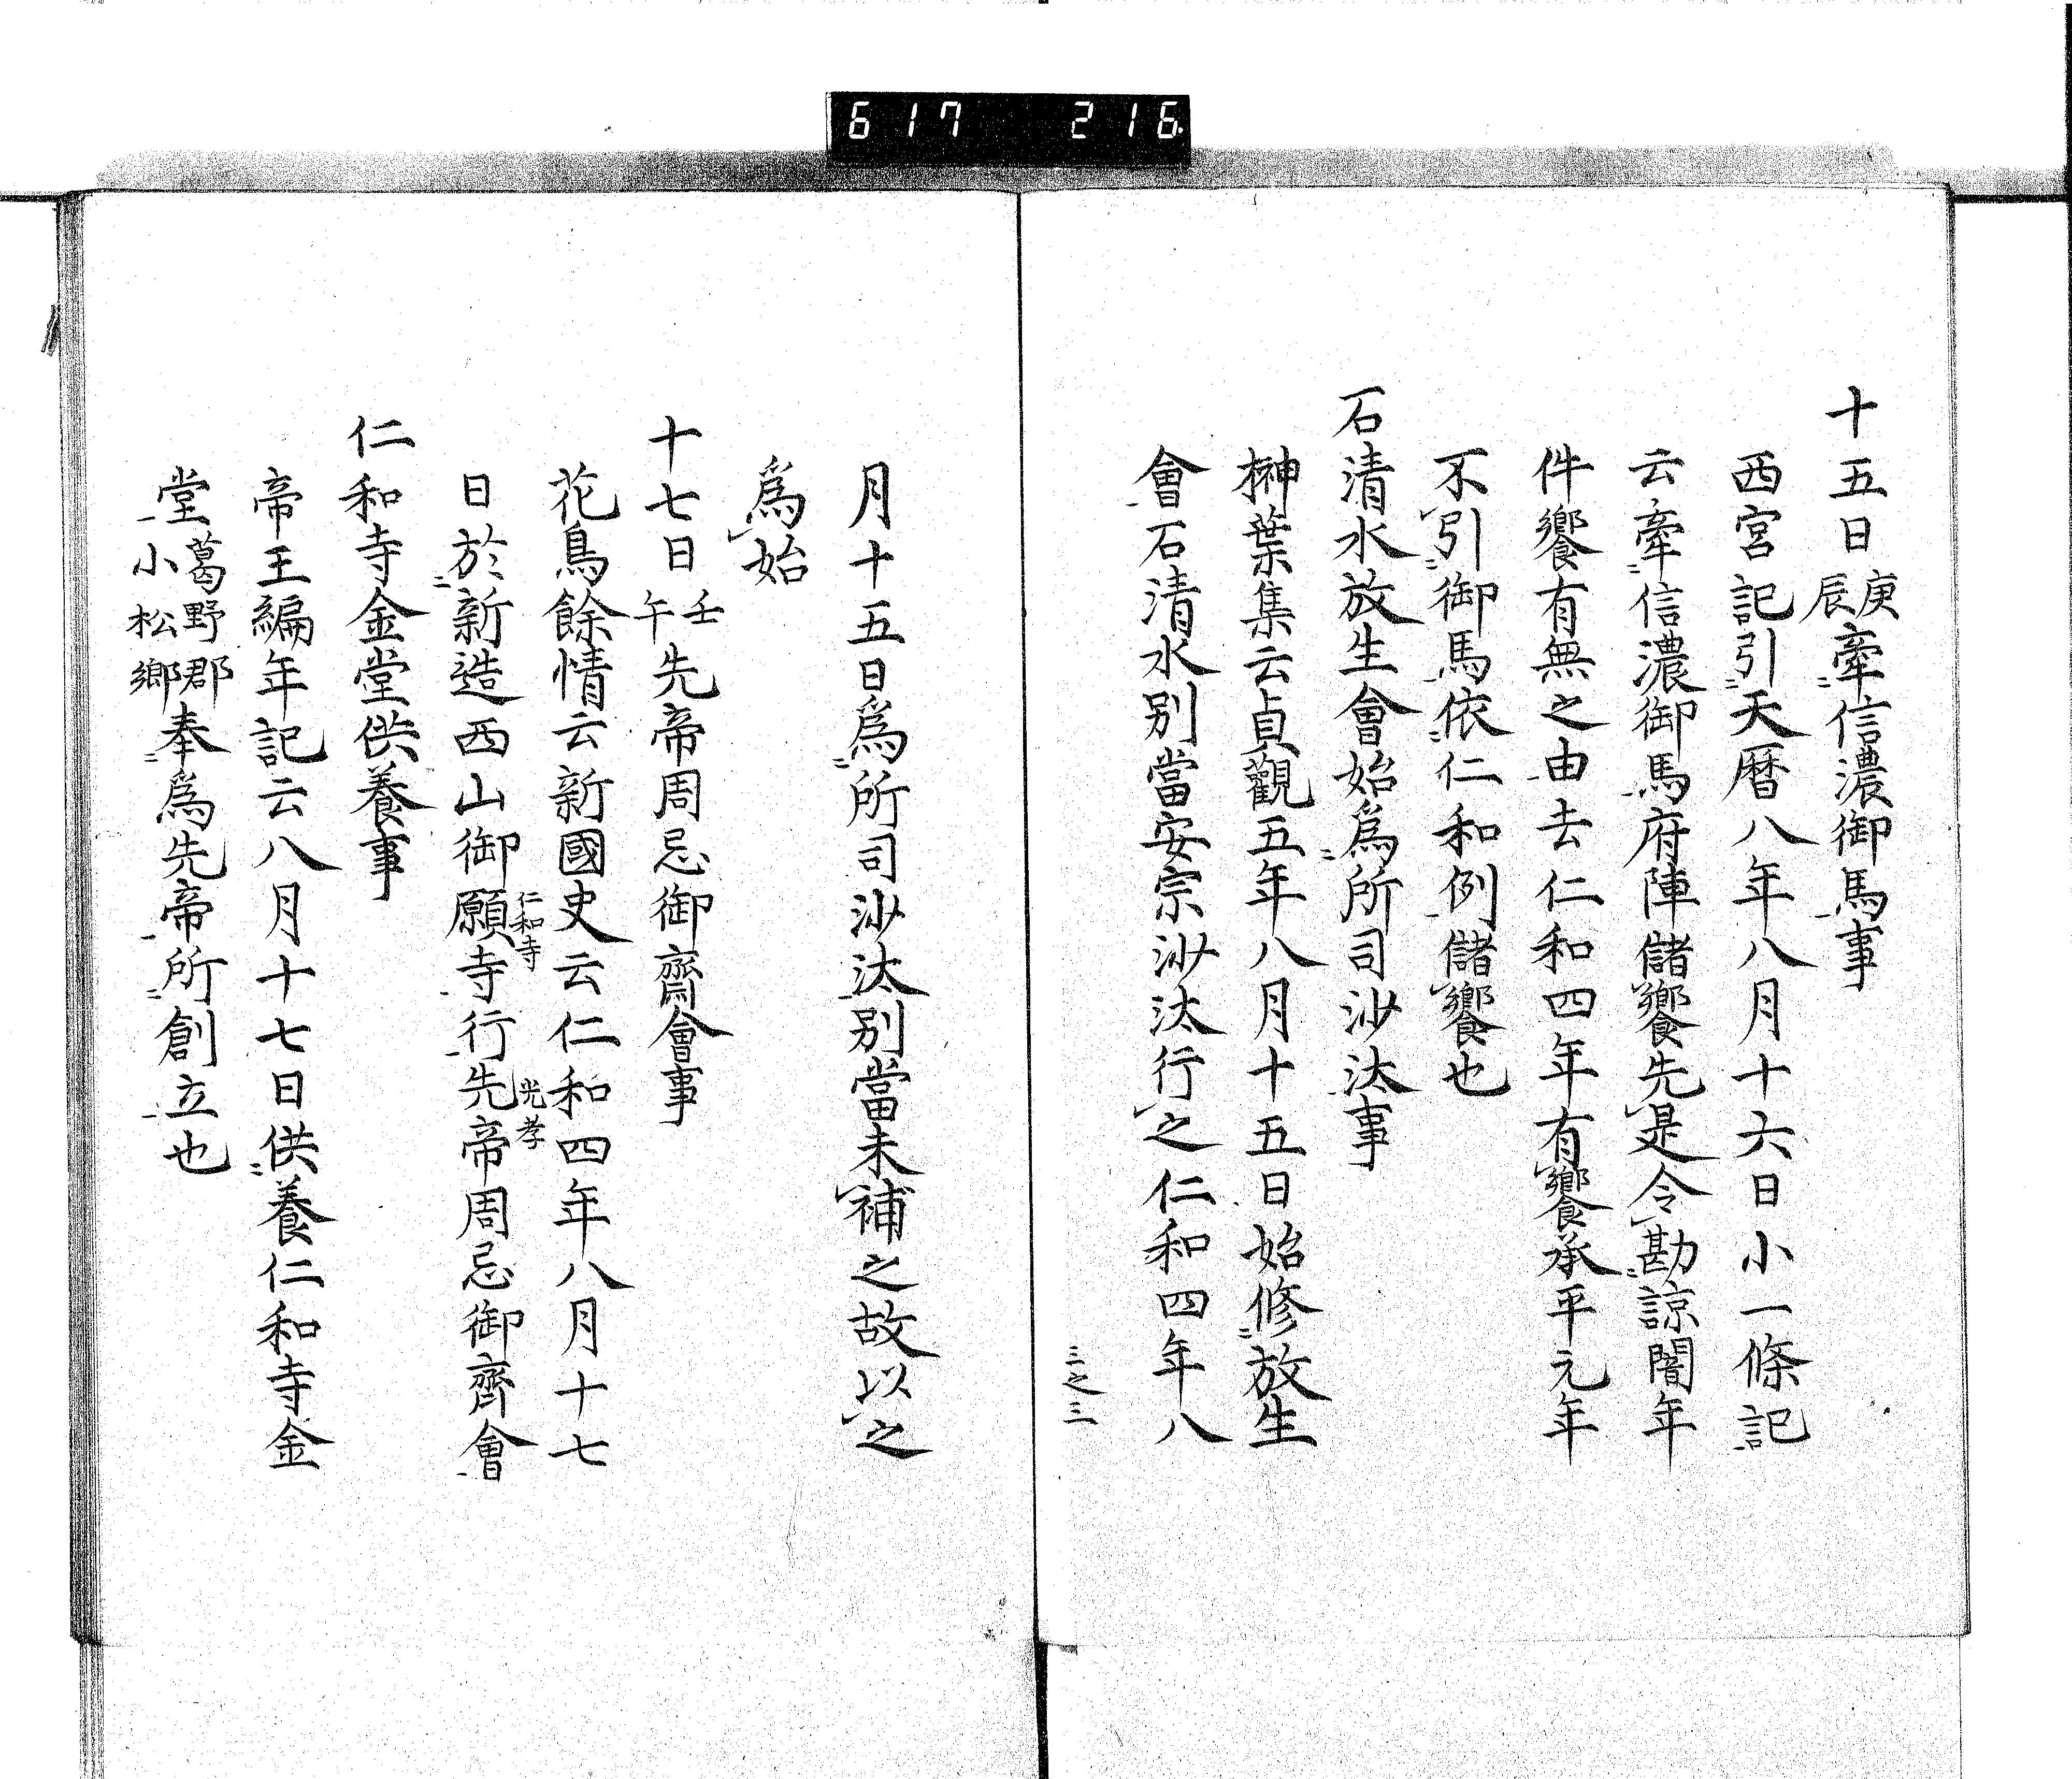 617 216
十五日庚辰牽信濃御馬事
西宮記引天暦八年八月十六日小一條記
云牽信濃御馬府陣儲饗先是令勘諒闇年
件饗有無之由去仁和四年有饗承平元年
不引御馬依仁和例儲饗也
石清水放生會始爲所司沙汰事
榊葉集云貞觀五年八月十五日始修放生
會石清水別當安宗沙汰行之仁和四年八
三之三
月十五日爲所司沙汰別當未補之故以之
爲始
十七日壬午先帝周忌御齋會事
花鳥餘情云新國史云仁和四年八月十七
日於新造西山御願寺行先帝周忌御齊會
仁和寺
光孝
仁和寺金堂供養事
帝王編年記云八月十七日供養仁和寺金
堂葛野郡小松鄉奉爲先帝所創立也